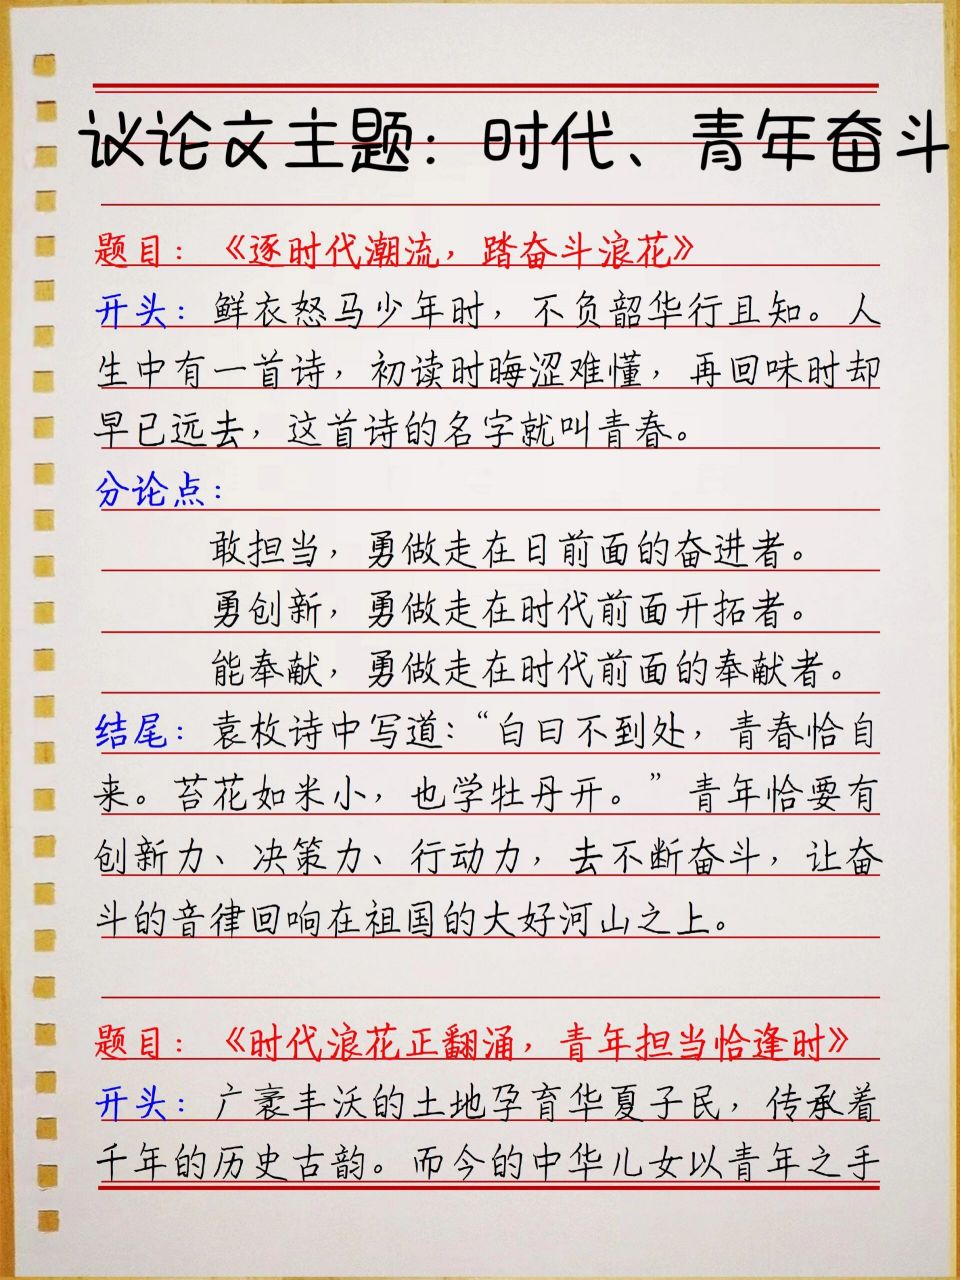 议论文主题：时代、青年奋斗
题目：《逐时代潮流，踏奋斗浪花》
开头：鲜衣怒马少年时，不负韶华行且知。人
生中有一首诗，初读时晦涩难懂，再回味时却
早已远去，这首诗的名字就叫青春。
分论点：
敢担当，勇做走在日前面的奋进者。
勇创新，勇做走在时代前面开拓者。
能奉献，勇做走在时代前面的奉献者。
结尾：袁枚诗中写道：“白日不到处，青春恰自
来。苔花如米小，也学牡丹开。”青年恰要有
创新力、决策力、行动力，去不断奋斗，让奋
斗的音律回响在祖国的大好河山之上。
题目：《时代浪花正翻涌，青年担当恰逢时》
开头：广袤丰沃的土地孕育华夏子民，传承着
千年的历史古韵。而今的中华儿女以青年之手